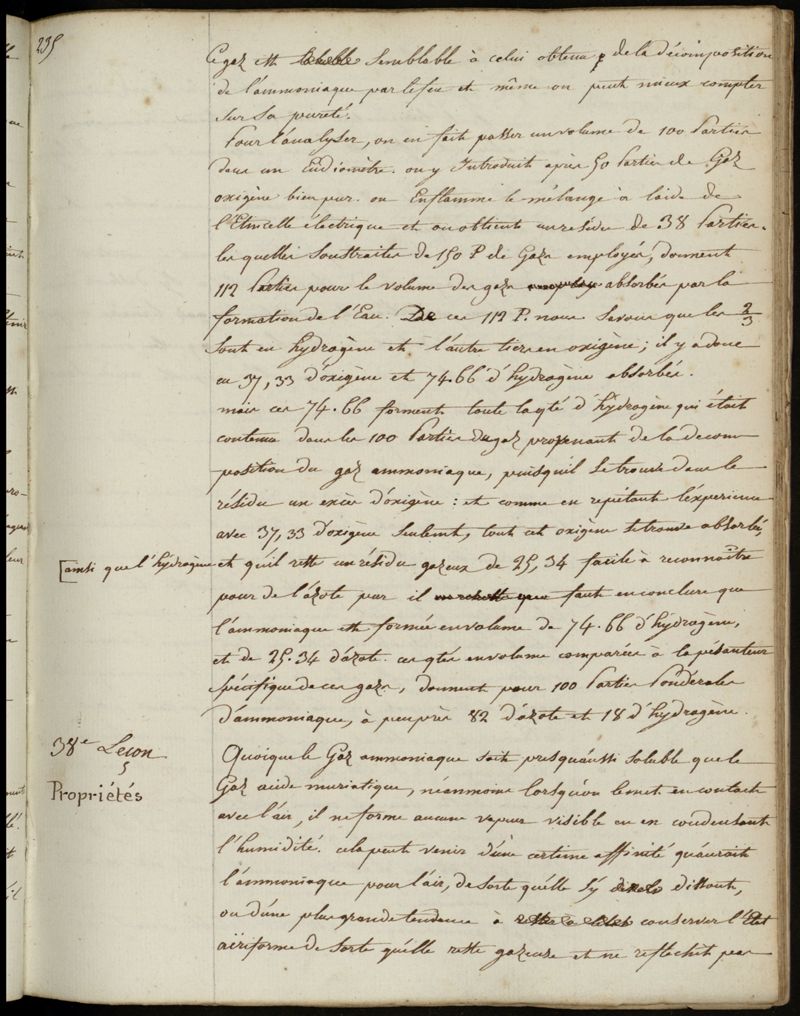 235
Ce gaz est semblable à celui obtenu p de la décomposition
de l'ammoniaque par le feu et même on peut mieux compter
sur sa pureté.
Pour l'analyser, on en fait passer un volume de 100 Parties
dans un Eudiomètre. on y Introduit après 50 Parties de Gaz
oxigène bien pur. on Enflamme le mélange à l'aide de
l'Etincelle électrique et on obtient un residu de 38 Parties.
les quelles soustraites de 150 P de Gazs employés, donnent
112 Parties pour le volume des gazs employés absorbés par la
formation de l'Eau. De ces 112 P. nous savons que les 2/3
sont en hydrogène et l'autre tiers en oxigène; il y a donc
eu 37,33 d'oxigène et 74.66 d'hydrogène absorbés.
mais ces 74.66 forment toute la qté d'hydrogène qui était
contenu dans les 100 Parties du gaz provenant de la decom
position du gaz ammoniaque, puisqu'il se trouve dans le
résidu un excès d'oxigène : et comme en repétant l'experience
avec 37,33 d'oxigène seulemt, tout cet oxigène se trouve absorbé,
[ainsi que l'hydrogène
et qu'il reste un résidu gazeux de 25,34 facile à reconnaître
pour de l'azote pur il faut en conclure que
l'ammoniaque est formée en volume de 74.66 d'hydrogène,
et de 25.34 d'azote. ces qtés en volume comparées à la pésanteur
spécifique de ces gazs, donnent pour 100 Parties Pondérales
d'ammoniaque, à peu près 82 d'azote et 18 d'hydrogène.
38e Leçon
§
Propriétés
Quoique le Gaz ammoniaque soit presqu'aussi soluble que le
Gaz acide muriatique, néanmoins lorsqu'on le met en contact
avec l'air, il ne forme aucune vapeur visible en en condensant
l'humidité. cela peut venir d'une certaine affinité qu'aurait
l'ammoniaque pour l'air, de sorte qu'elle s'y dissout,
ou d'une plus grande tendance à conserver l'Etat
aëriforme de sorte qu'elle reste gazeuse et ne reflechit pas